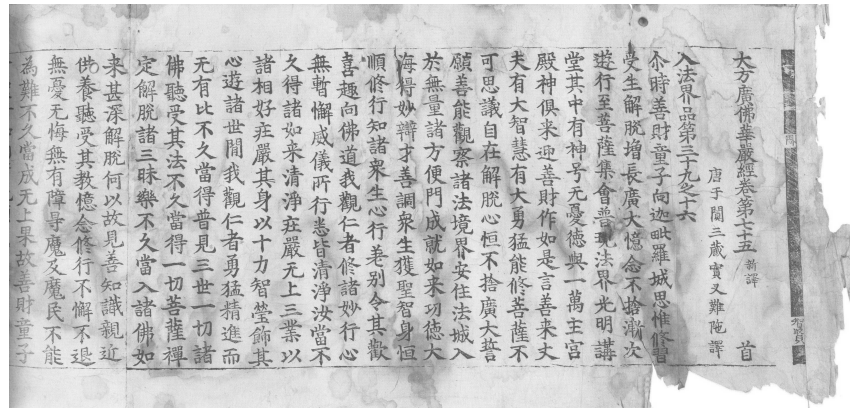 大方廣佛華嚴經卷第七十五 新譯 首
唐于闐三藏實叉難陁譯
入法界品第三十九之十六
尒時善財童子向迦毗羅城思惟修習
受生解脫增長廣大憶念不捨漸次
遊行至菩薩集會普現法界光明講
堂其中有神号无憂德與一萬主宮
殿神俱来迎善財作如是言善来丈
夫有大智慧有大勇猛能修菩薩不
可思議自在解脫心恒不捨廣大誓
願善能觀察諸法境界安住法城入
於無量諸方便門成就如来功德大
海得妙辯才善調衆生獲聖智身恒
順修行知諸衆生心行差別令其歡
喜趣向佛道我觀仁者修諸妙行心
無暫懈威儀所行悉皆清淨汝當不
久得諸如来清淨莊嚴无上三業以
諸相好莊嚴其身以十力智瑩飾其
心遊諸世閒我觀仁者勇猛精進而
无有比不久當得普見三世一切諸
佛聽受其法不久當得一切菩薩禪
定解脫諸三昧樂不久當入諸佛如
来甚深解脫何以故見善知識親近
供養聽受其教憶念修行不懈不退
無憂无悔無有障㝵魔及魔民不能
為難不久當成无上果故善財童子